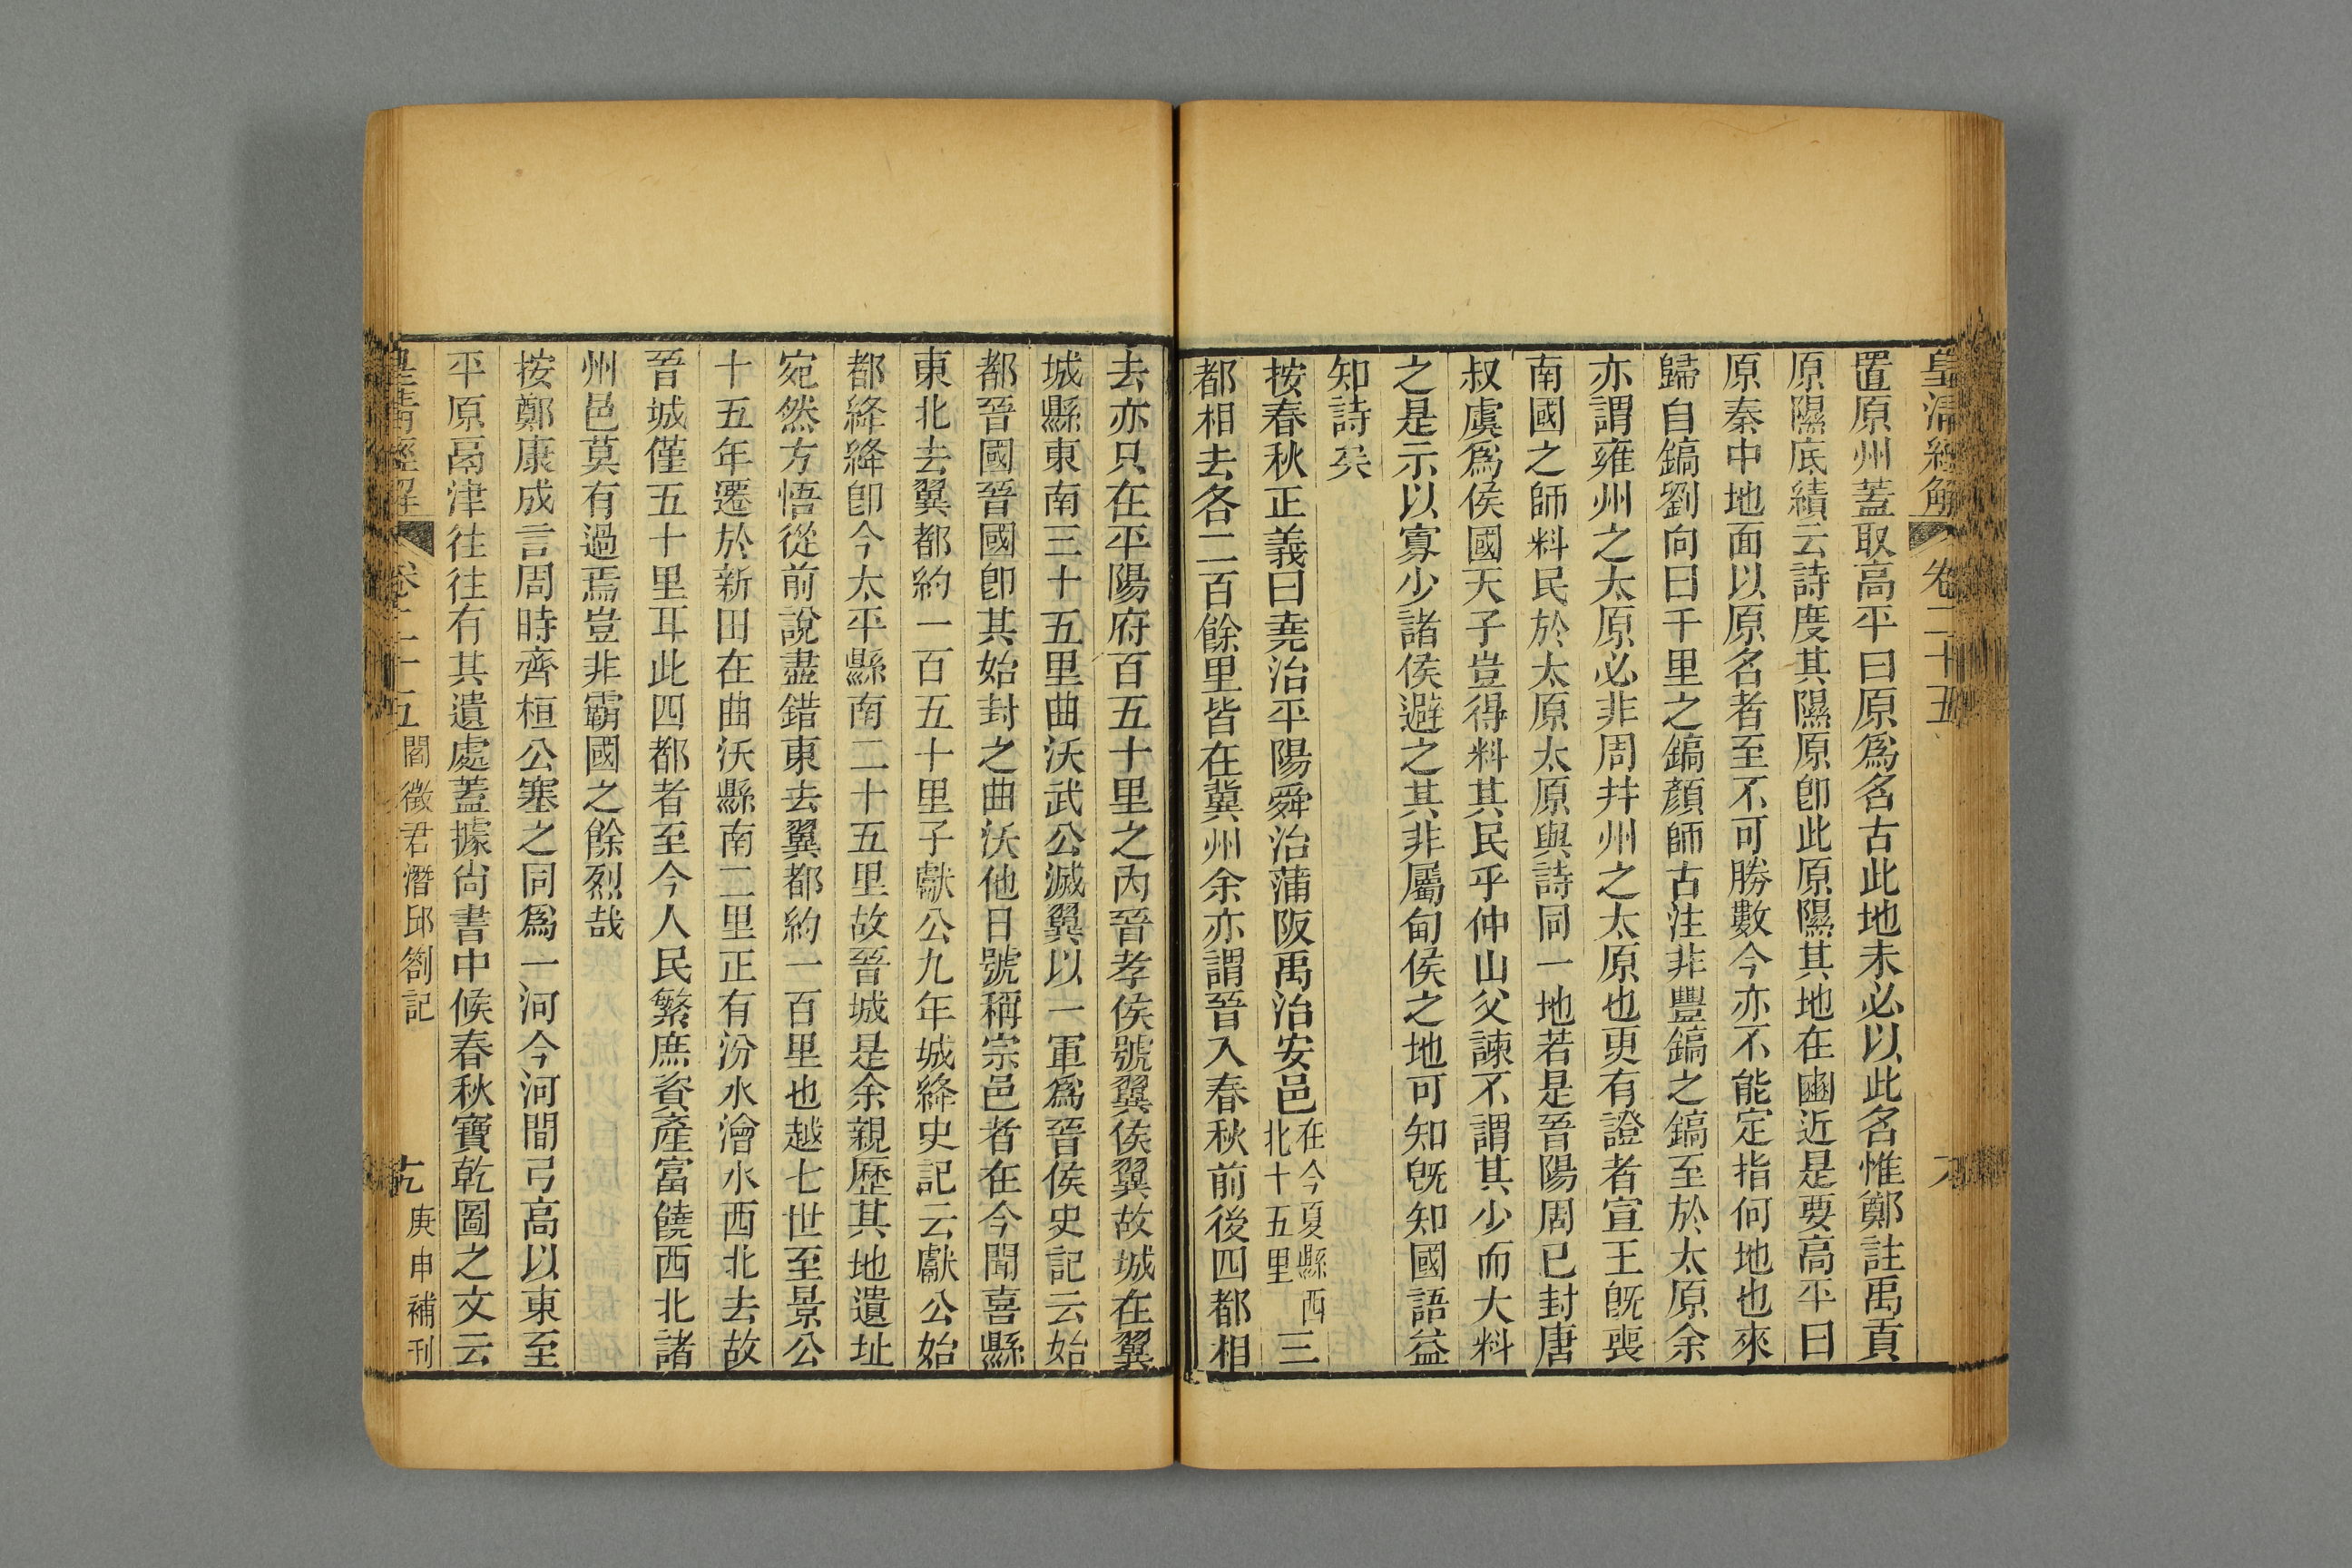 皇清經解 卷二十五
置原州蓋取高平曰原爲名古此地未必以此名惟鄭註禹貢
原隰底績云詩度其隰原卽此原隰其地在豳近是要高平曰
原秦中地面以原名者至不可勝數今亦不能定指何地也來
歸自鎬劉向曰千里之鎬顏師古注非豐鎬之鎬至於太原余
亦謂雍州之太原必非周幷州之太原也更有證者宣王旣喪
南國之師料民於太原太原與詩同一地若是晉陽周已封唐
叔虞爲侯國天子豈得料其民乎仲山父諫不謂其少而大料
之是示以寡少諸侯避之其非屬甸侯之地可知旣知國語益
知詩矣
按春秋正義曰堯治平陽舜治蒲阪禹治安邑在今夏縣西北十五里三
都相去各二百餘里皆在冀州余亦謂晉入春秋前後四都相
去亦只在平陽府百五十里之內晉孝侯號翼侯翼故城在翼
城縣東南三十五里曲沃武公滅翼以一軍爲晉侯史記云始
都晉國晉國卽其始封之曲沃他日號稱宗邑者在今聞喜縣
東北去翼都約一百五十里子獻公九年城絳史記云獻公始
都絳絳卽今太平縣南二十五里故晉城是余親歷其地遺址
宛然方悟從前說盡錯東去翼都約一百里也越七世至景公
十五年遷於新田在曲沃縣南二里正有汾水澮水西北去故
晉城僅五十里耳此四都者至今人民繁庶資產富饒西北諸
州邑莫有過焉豈非霸國之餘烈哉
按鄭康成言周時齊桓公塞之同爲一河今河間弓高以東至
平原鬲津往往有其遺處蓋據尙書中候春秋寶乾圖之文云
皇清經解 卷二十五 閻徵君潛邱劄記 九 庚申補刊